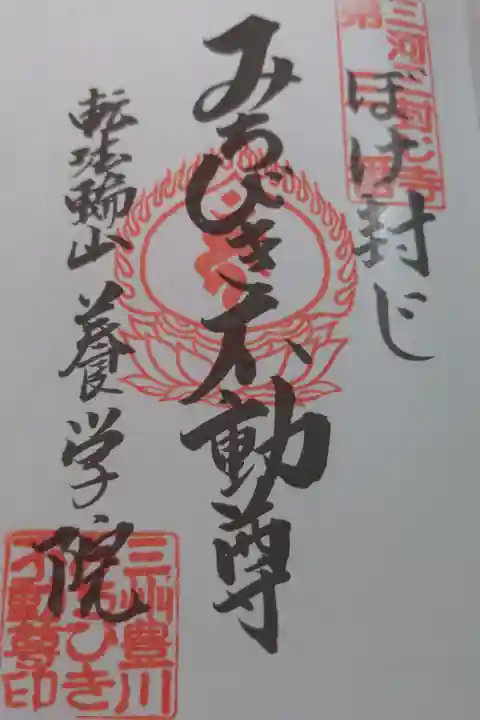 三河ぼけ封じ寺
ぼけ封じ
みちびき不動尊
転法輪山 養学院
三州豊川
みちびき
不動尊印